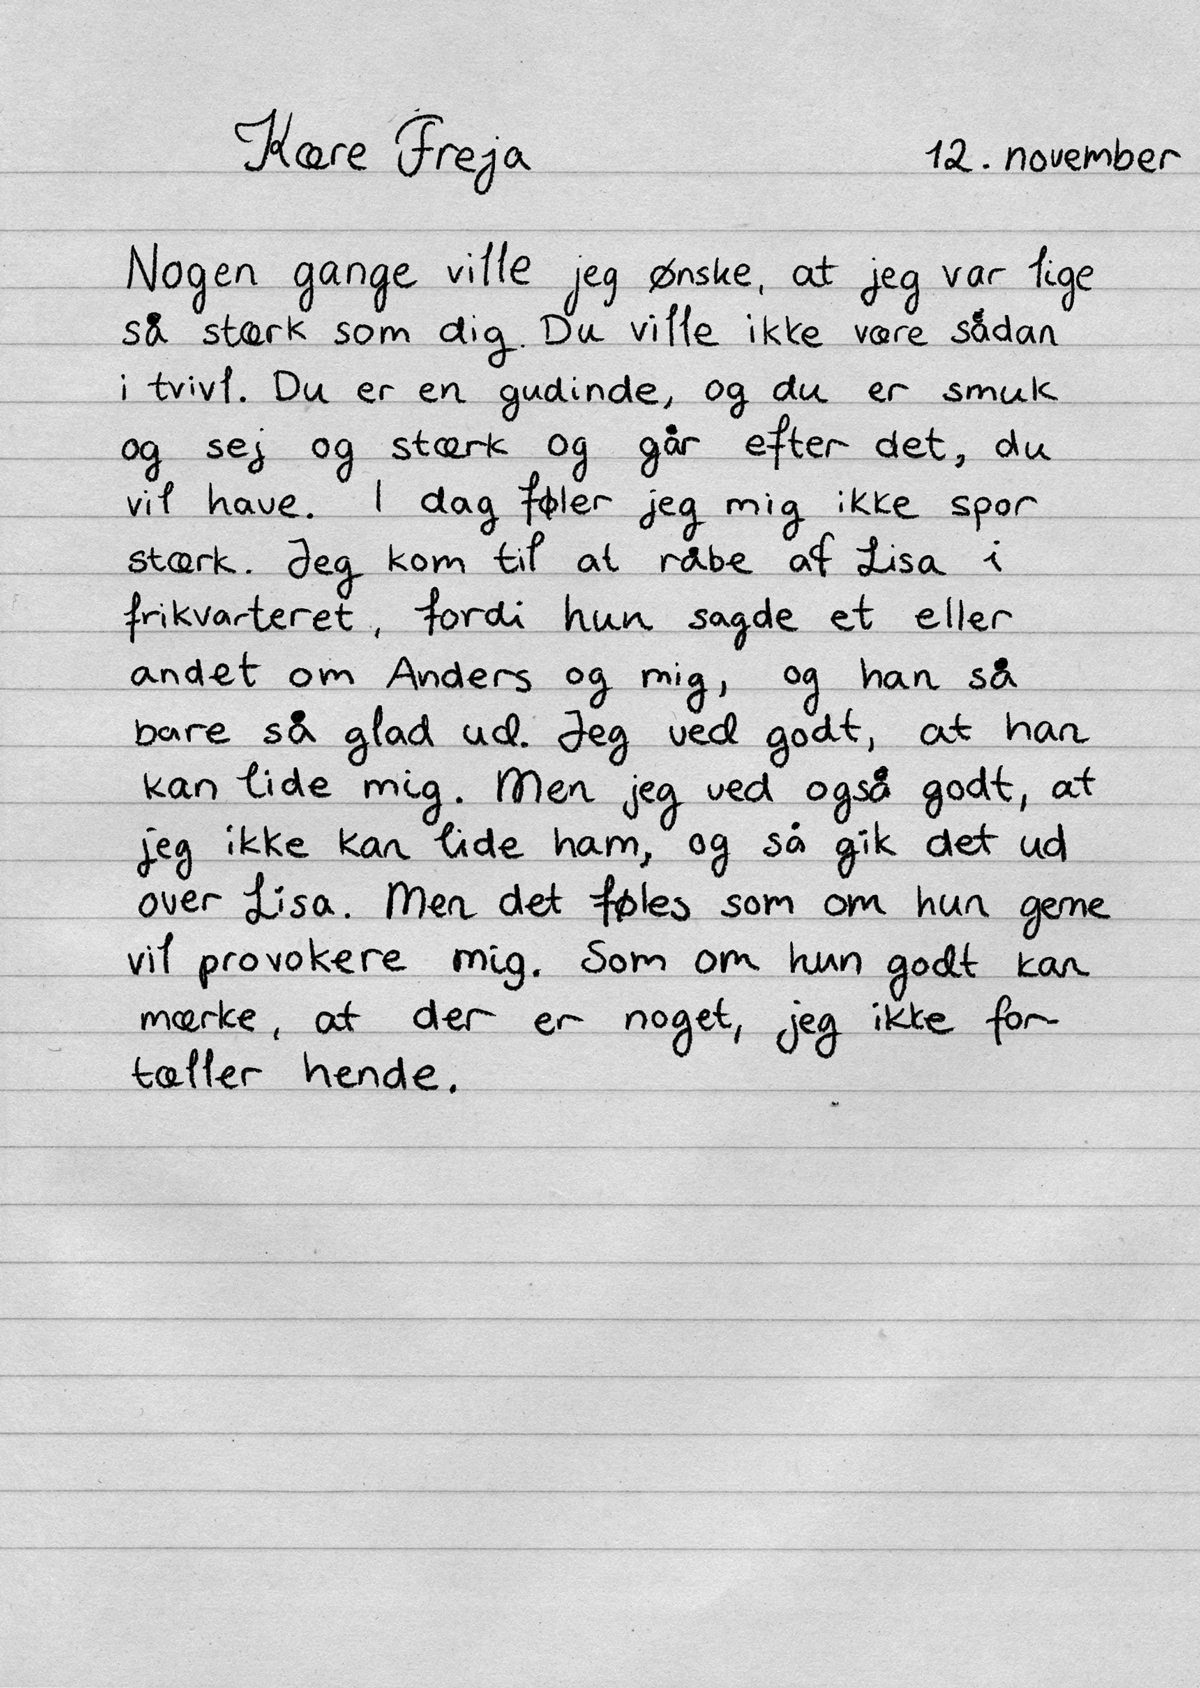 Kære Freja
12. november
Nogen gange ville jeg ønske, at jeg var lige
så stærk som dig. Du ville ikke være sådan
i tvivl. Du er en gudinde, og du er smuk
og sej og stærk og går efter det, du
vil have. I dag føler jeg mig ikke spor
stærk. Jeg kom til at råbe af Lisa i
frikvarteret, fordi hun sagde et eller
andet om Anders og mig, og han så
bare så glad ud. Jeg ved godt, at han
kan lide mig. Men jeg ved også godt, at
jeg ikke kan lide ham, og så gik det ud
over Lisa. Men det føles som om hun gerne
vil provokere mig. Som om hun godt kan
mærke, at der er noget, jeg ikke for-
tæller hende.